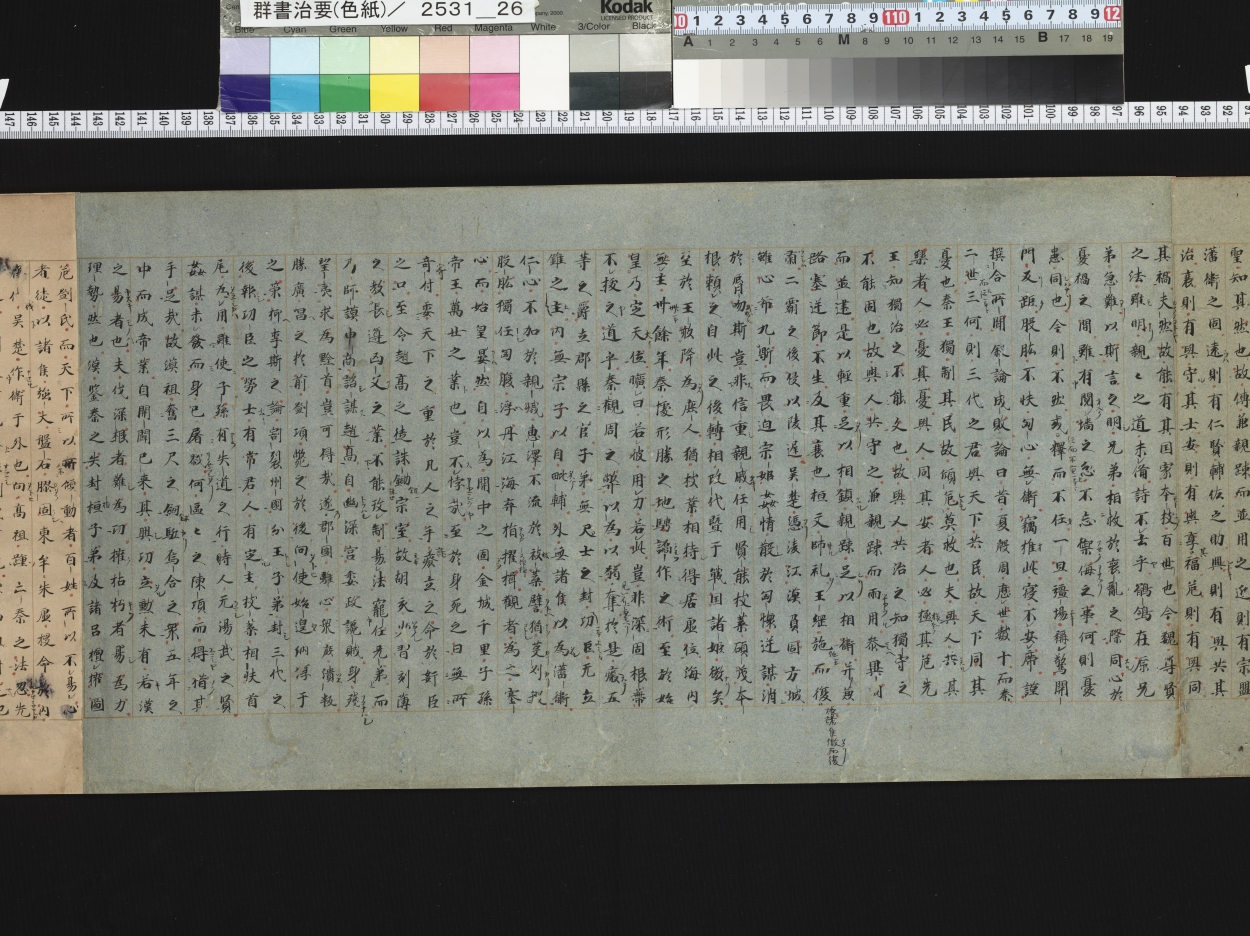 群書治要(色紙)／ 2531__26
Kodak
LICENSED PRODUCT
Blue Cyan Green Yellow Red Magenta White 3/Color Black
聖知其然也故傅兼親踈而並用之近則有宗盟
藩衛之固遠則有仁賢輔佐之助興則有與共其
治衰則有與守其土安則有與享福危則有與同
其禍夫然故能有其国家本枝百世也今魏尊賢
之法雖明親〻之道未俻詩不云乎鶺鴒在原兄
弟急難以斯言之明兄弟相救於喪亂之際同心於
憂禍之間雖有閱墻之忿不忘禦侮之事何則憂
患同也今則不然或釋而不任一旦壃場稱驚開
門反距股肱不扶匈心無衛竊推此寝不安席謹
撰合所聞叙論成敗論曰昔夏殷周歴世數十而秦
二世三何則三代之君與天下共民故天下同其
憂也秦王獨制其民故傾危莫救也夫與人共其
樂者人必憂其憂與人同其安者人必極其危先
王知獨治之不能久也故與人共治之知獨守之
不能固也故與人共守之兼親踈而兩用叅異
而並建是以輕重足以相鎮親踈足以相衛并兼
路塞逆節不生及其衰也桓文師礼王綱施而復
肅二霸之後侵以陵遅吴楚憑凌江漢負固方城
雖心希九鼎而畏迫宗姫姧情散於匈懐逆謀消
於脣吻斯豈非信重親戚任用賢能枝葉碩茂本
根頼之自此之後轉相攻伐曁于戦国諸姫微矣
至於王赧降為庶人猶枝葉相持得居虚位海内
無主卅餘年秦據形勝之地騁譎詐之術至於始
皇乃定天位曠日若彼用力若此豈非深固根蔕
不拔之道乎秦觀周之弊以為以弱奪於是廢五
等之爵立郡縣之官子弟無尺土之封功臣无立
錐之土内無宗子以自毗輔外無諸侯以為藩衛
仁心不加於親戚惠澤不流於枝葉譬猶芟刈
股肱獨任匈腹浮丹江海弃捐櫂檝觀者為之寒
心而始皇晏然自以為関中之固金城千里子孫
帝王萬世之業也豈不悖哉至於身死之日無所
寄付委天下之重於凡人之手廢立之命於姧臣
之口至令趙高之徒誅鋤宗室故胡亥少習刻薄
之教長遵凶父之業不能改制易法寵任兄弟而
乃師謨申商諮謀趙高自幽深宮委政讒賊身残
望夷求為黔首豈可得哉遂郡國離心衆庶潰叛
勝廣昌之於前劉項斃之於後向使始皇納淳于
之策抑李斯之論割裂州國分王子弟封三代之
後報功臣之勞士有常君人有定主枝葉相扶首
尾為用雖使子孫有失道之行時人无湯武之賢
姧謀未發而身已屠戮何區〻之陳項而得措其
手足哉故漢祖奮三尺之劒敺烏合之衆五年之
中而成帝業自開闢已来其興功立勲未有若漢
之易者也夫伐深根者難為功摧枯朽者易為力
理勢然也漢鍳秦之失封桓子弟及諸吕擅權圖
危劉氏而天下所以所傾動者百姓所以不易心
者徒以諸侯強大盤石膠固東牟朱虚授命内